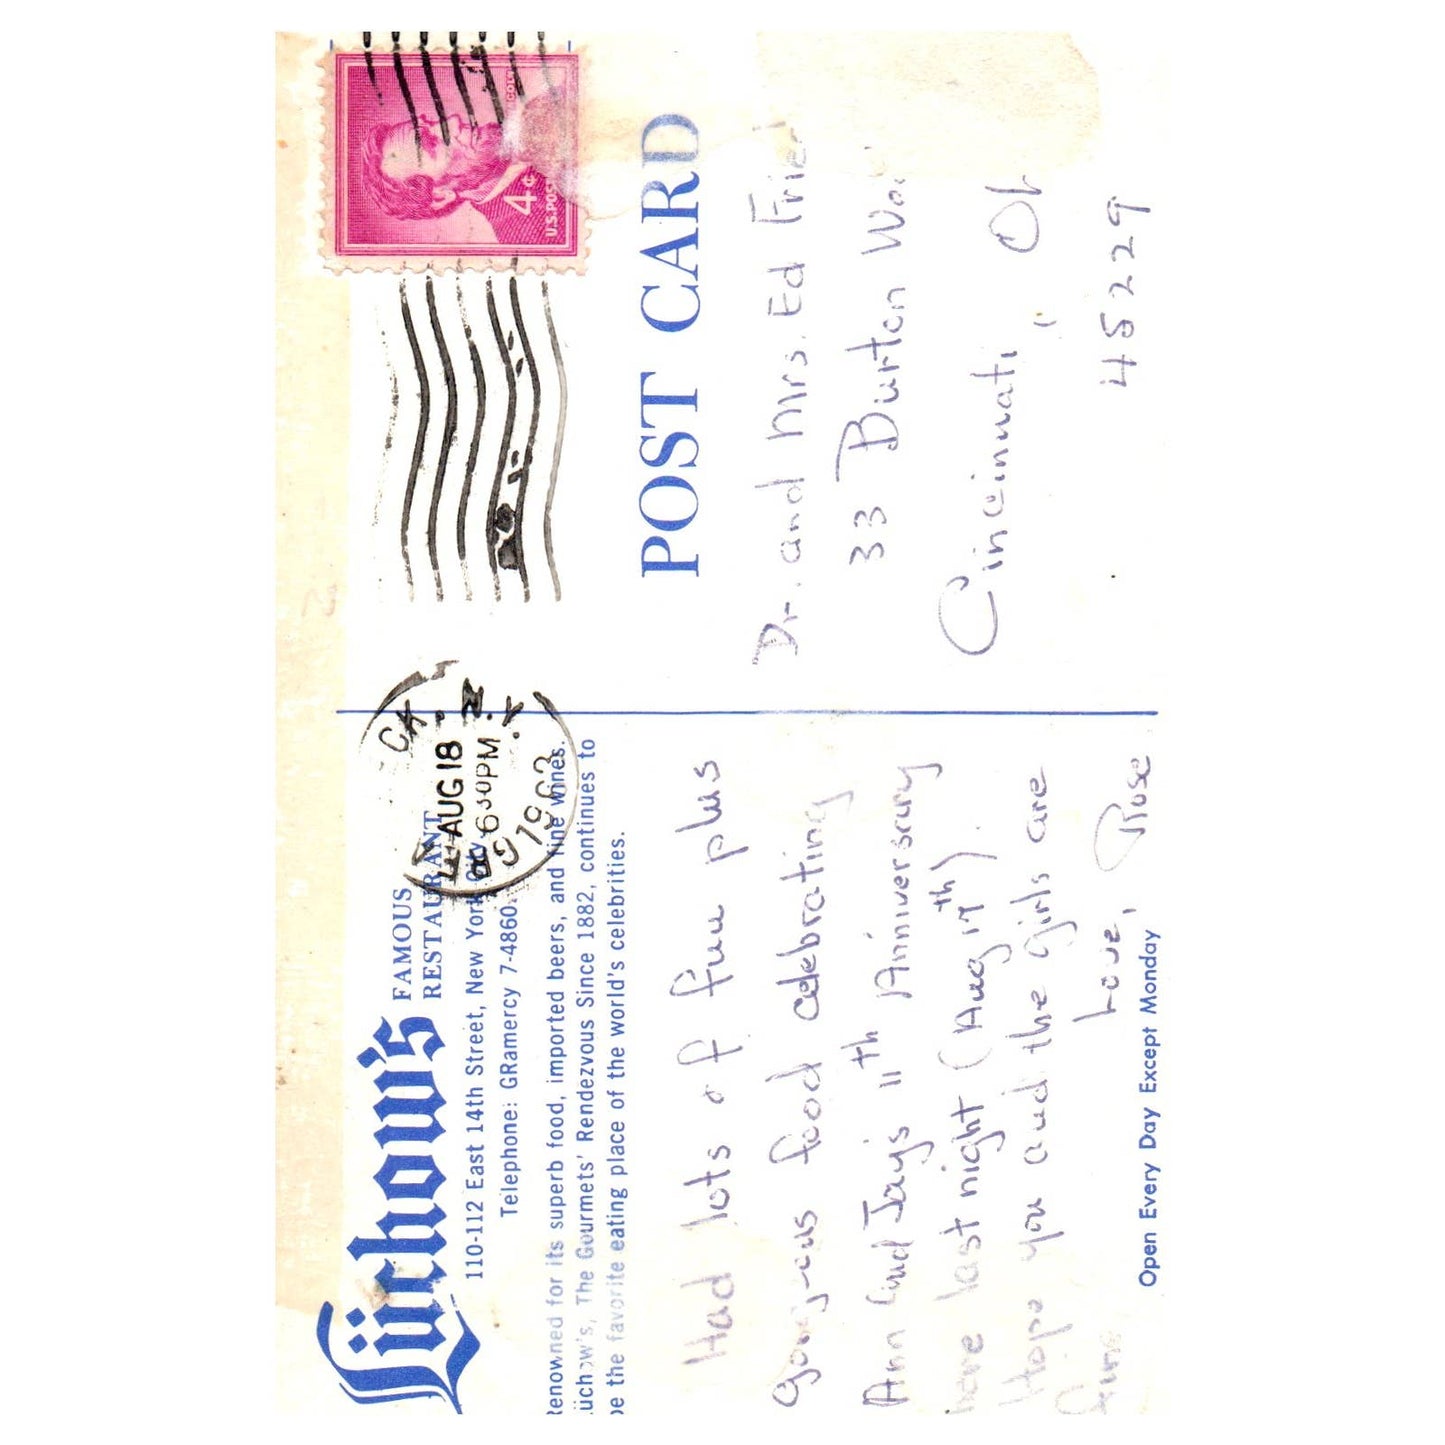 Lüchow's FAMOUS
RESTAURANT
110-112 East 14th Street, New York City
Telephone: GRamercy 7-4860.
Renowned for its superb food, imported beers, and fine wines.
Lüchow's, The Gourmets' Rendezvous Since 1882, continues to
be the favorite eating place of the world's celebrities.
Had lots of fun plus
gorgeous food celebrating
Ann and Jay's 11th Anniversary
here last night (Aug 17th).
Hope you and the girls are
fine
Love, Rose
Open Every Day Except Monday
AUG 18
6 30 PM
1963
N.Y.
4¢
U.S. POS
POST CARD
Dr. and Mrs. Ed Frie
33 Burton Wo
Cincinnati, Oh
45229